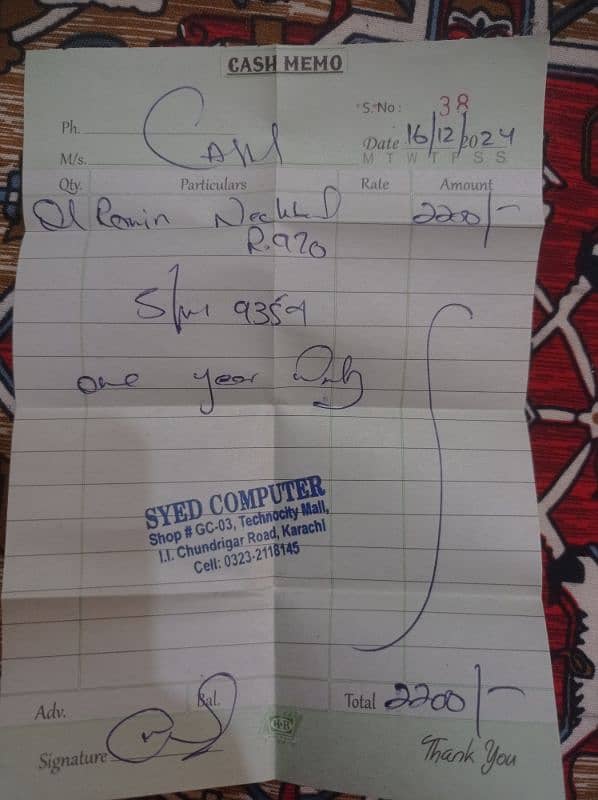 CASH MEMO
S.No: 38
Ph.
Date 16/12/2024
M/s. Cash
M T W T F S S
Qty. Particulars Rate Amount
01 Ronin 2200/-
R.970
S/no 9359
one year
SYED COMPUTER
Shop # GC-03, Technocity Mall,
I.I. Chundrigar Road, Karachi
Cell: 0323-2118145
Adv. Bal. Total 2200/-
H.R
Signature
Thank You